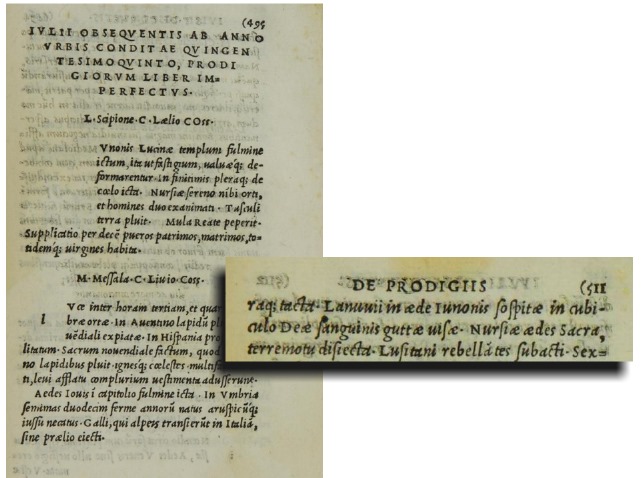 (495
IVLII OBSEQVENTIS AB ANNO
VRBIS CONDITAE QVINGEN
TESIMOQVINTO, PRODI
GIORVM LIBER IM=
PERFECTVS.
L. Scipione. C. Lælio COss.
Vnonis Lucinæ templum fulmine
ictum, ita ut fastigium, valuæq; de-
formarentur. In finitimis pleraq; de
cœlo icta. Nursiæ sereno nibi orti,
et homines duo exanimati. Tusculi
terra pluit. Mula Reate peperit.
Supplicatio per decē pueros patrimos, matrimos, to=
tidemq; uirgines habita.
M. Messala. C. Liuio Coss.
Vce inter horam tertiam, et quar
l bræ ortæ. In Auentino lapidū pl
uēdiali expiatæ. In Hispania pro
litatum. Sacrum nouendiale factum, quod
no lapidibus pluit. ignesq; cœlestes multifa
ti, leui afflatu complurium uestimenta adusserunt.
Aedes Iouis ī capitolio fulmine icta. In Vmbria
semimas duodecim ferme annorū natus aruspicūq;
iussu necatus. Galli, qui alpes transierūt in Italiā,
sine prælio eiecti.
DE PRODIGIIS (511
raq; tacta. Lanuuii in æde Iunonis sospitæ in cubi-
culo Deæ sanguinis guttæ uisæ. Nursiæ ædes Sacra,
terremotu disiecta. Lusitani rebellātes subacti. Sex=